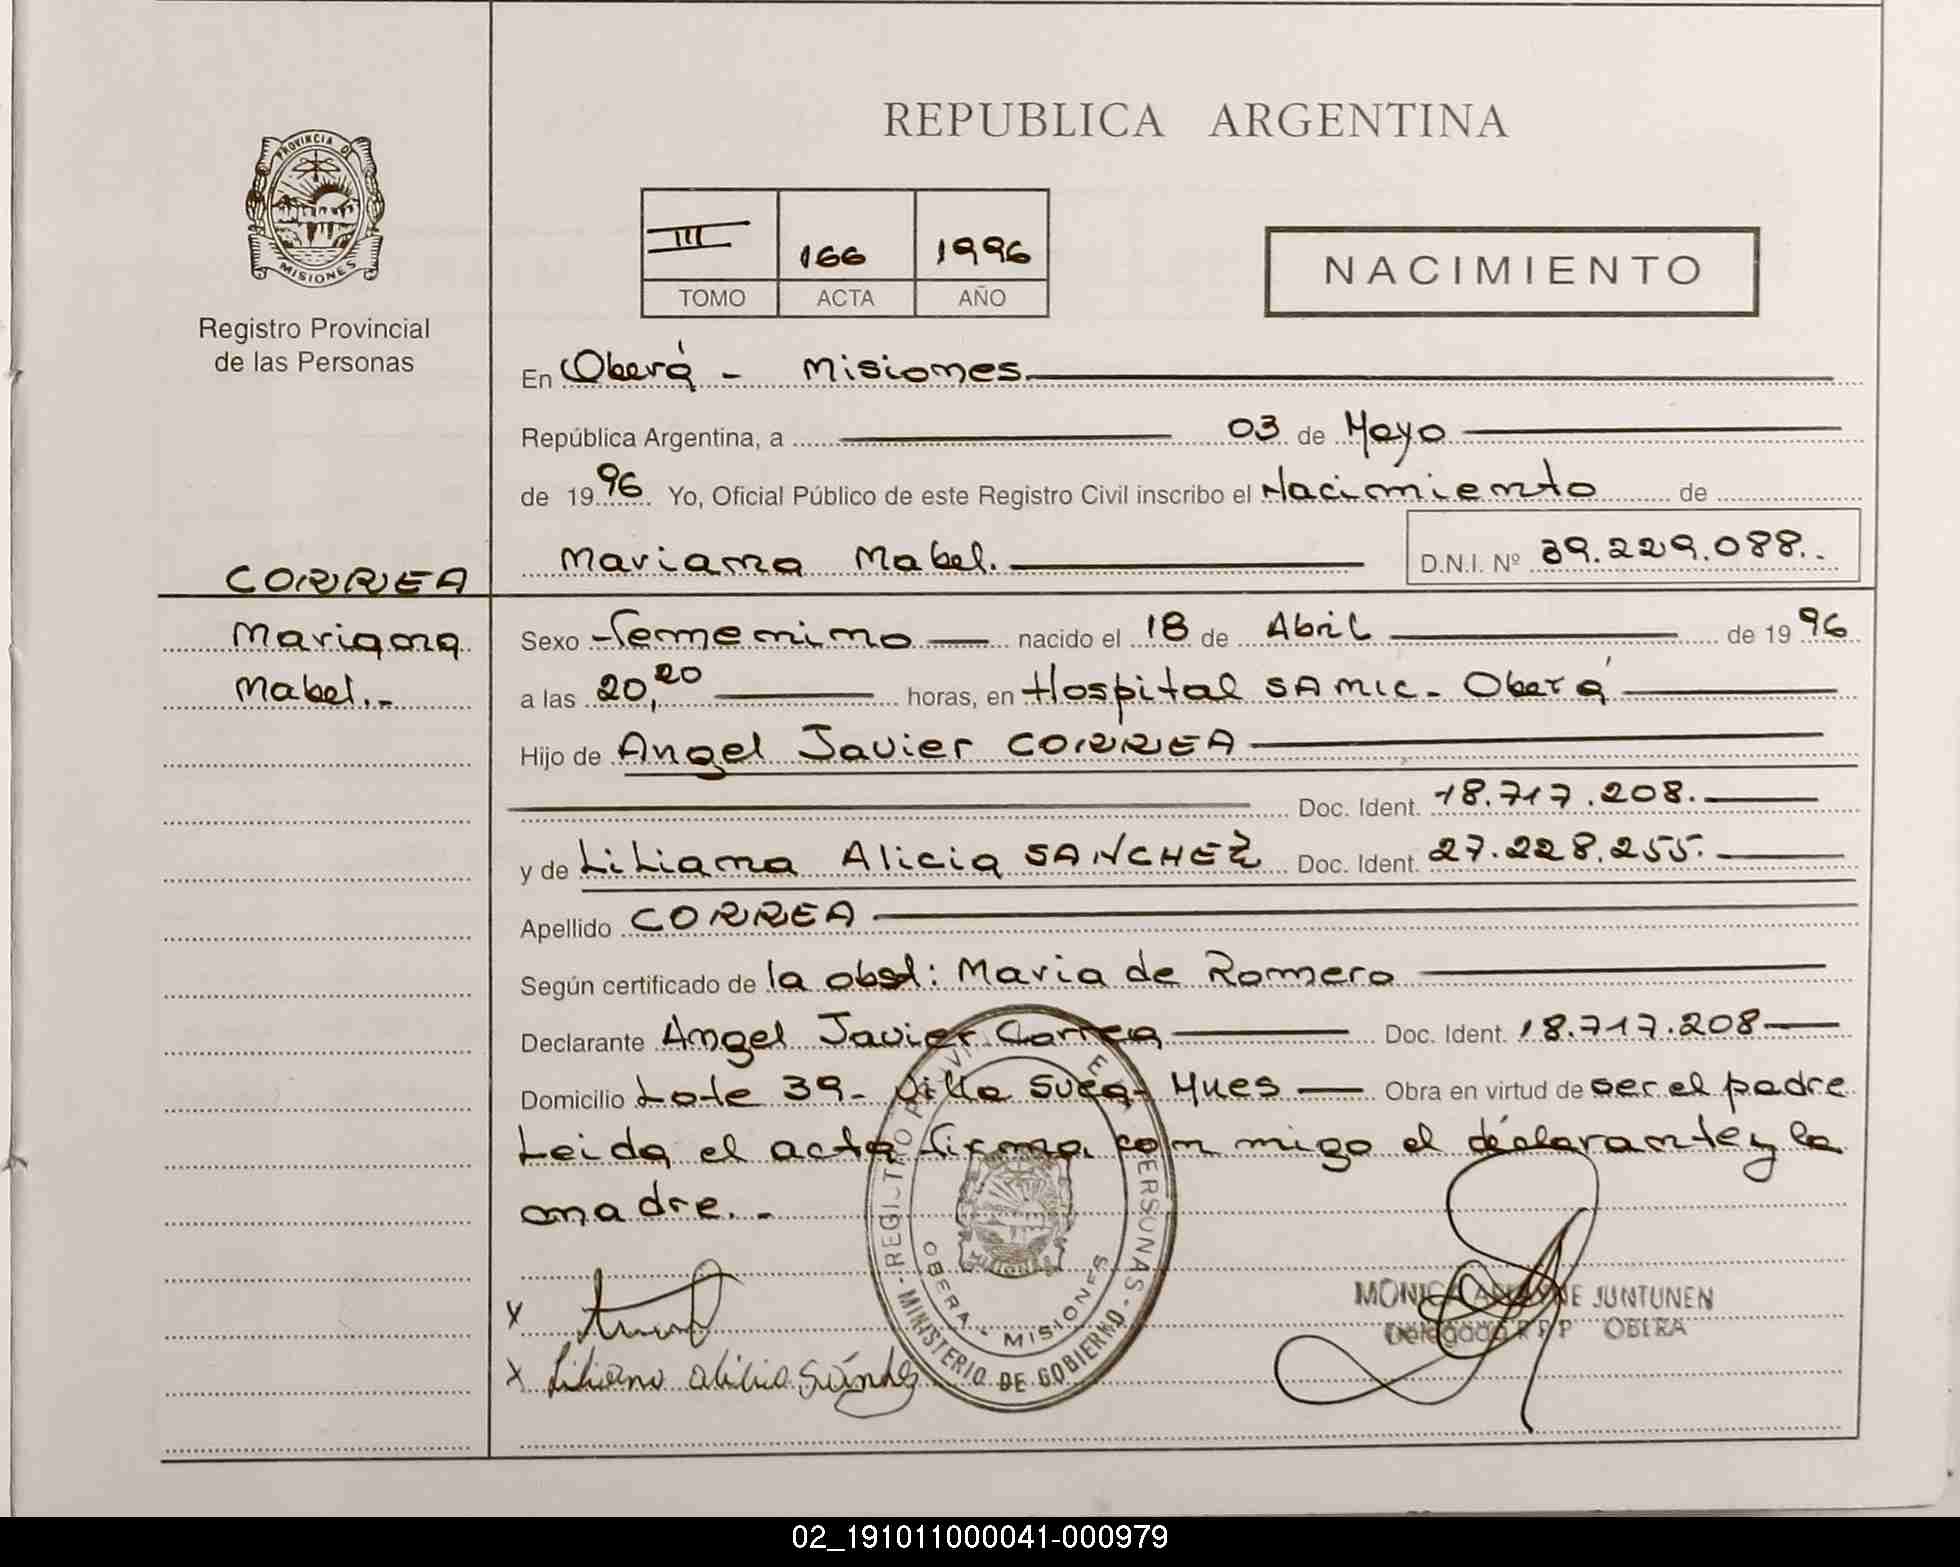 PROVINCIA DE
MISIONES
Registro Provincial
de las Personas
CORREA
Mariana
Mabel.-
REPUBLICA ARGENTINA
III 166 1996
TOMO ACTA AÑO
NACIMIENTO
En Oberá - Misiones
República Argentina, a 03 de Mayo
de 1996. Yo, Oficial Público de este Registro Civil inscribo el Nacimiento de
Mariana Mabel. D.N.I. Nº 39.229.088.-
Sexo Femenino nacido el 18 de Abril de 1996
a las 20,20 horas, en Hospital SAMIC - Oberá
Hijo de Angel Javier CORREA
Doc. Ident. 18.717.208.
y de Liliana Alicia SANCHEZ Doc. Ident. 27.228.255.
Apellido CORREA
Según certificado de la obst: Maria de Romero
Declarante Angel Javier Correa Doc. Ident. 18.717.208
Domicilio Lote 39- Villa Sueca- Obra en virtud de ser el padre
Leida el acta firma con migo el déclarante y la
madre.-
X
X Liliana Alicia Sánchez
OBERA - MISIONES
MINISTERIO DE GOBIERNO
JUNTUNEN
Delegada R P P OBERA
02_191011000041-000979